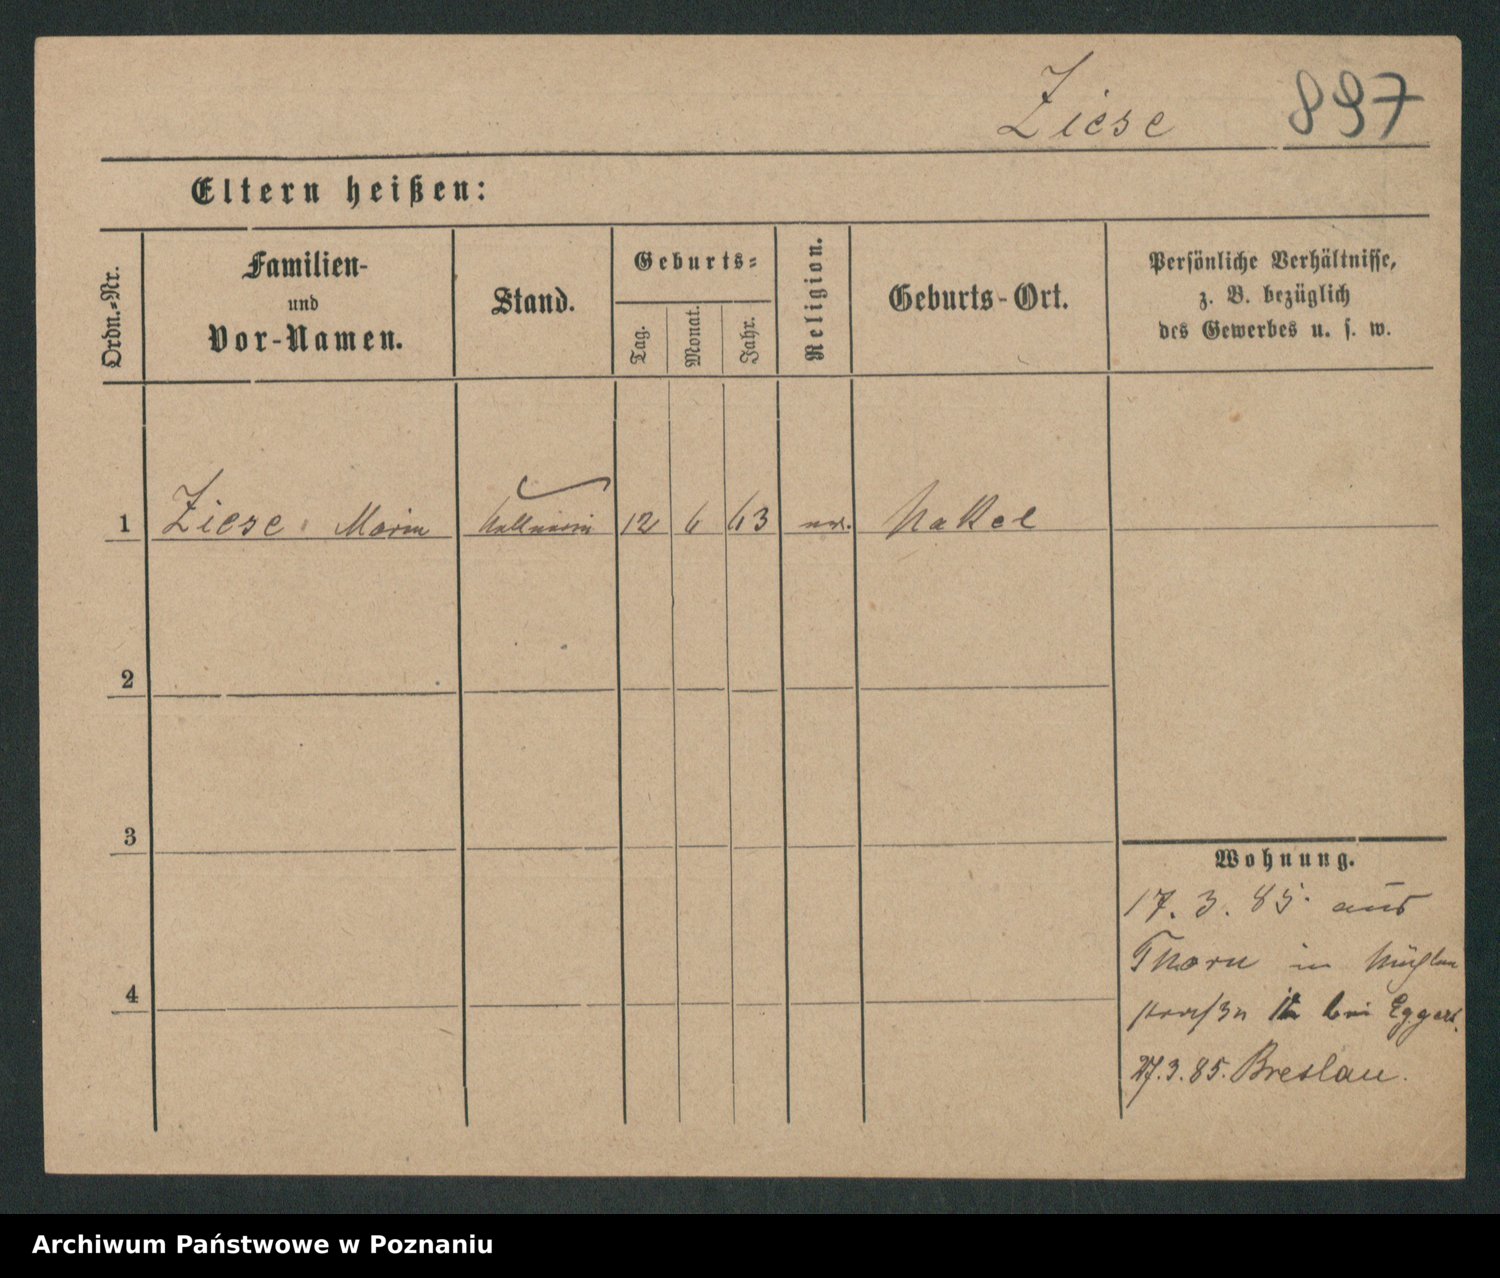 Ziese 897
Eltern heißen:
Ordn.-Nr.
Familien-
und
Vor-Namen.
Stand.
Geburts-
Tag.
Monat.
Jahr.
Religion.
Geburts-Ort.
Persönliche Verhältnisse,
z. B. bezüglich
des Gewerbes u. s. w.
1 Ziese Maria Kellnerin 12 6 63 ev. Nakel
2
3
4
Wohnung.
17. 3. 85. aus
Thorn in Mühlen
straße bei Eggert.
27.3.85. Breslau.
Archiwum Państwowe w Poznaniu